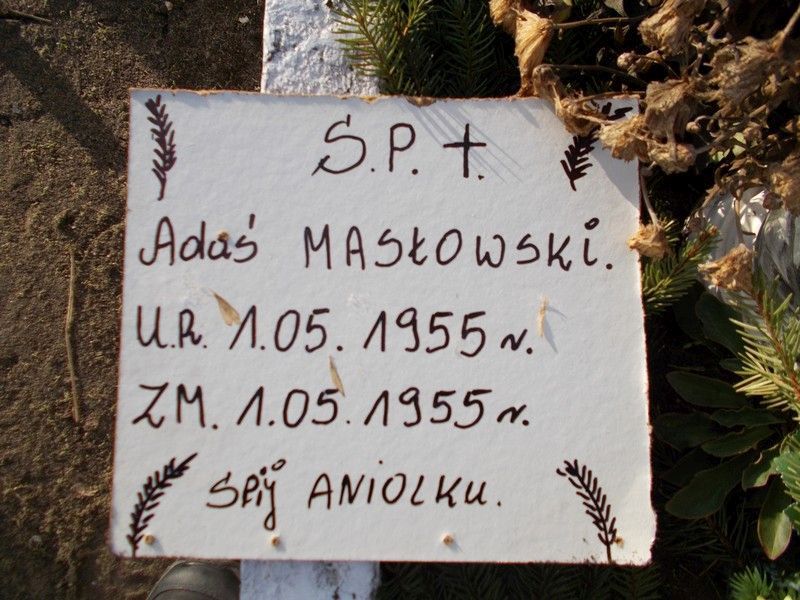 Ś.P. †.
Adaś MASŁOWSKi.
U.R. 1.05. 1955 r.
ZM. 1.05. 1955 r.
SPij ANiOLKU.